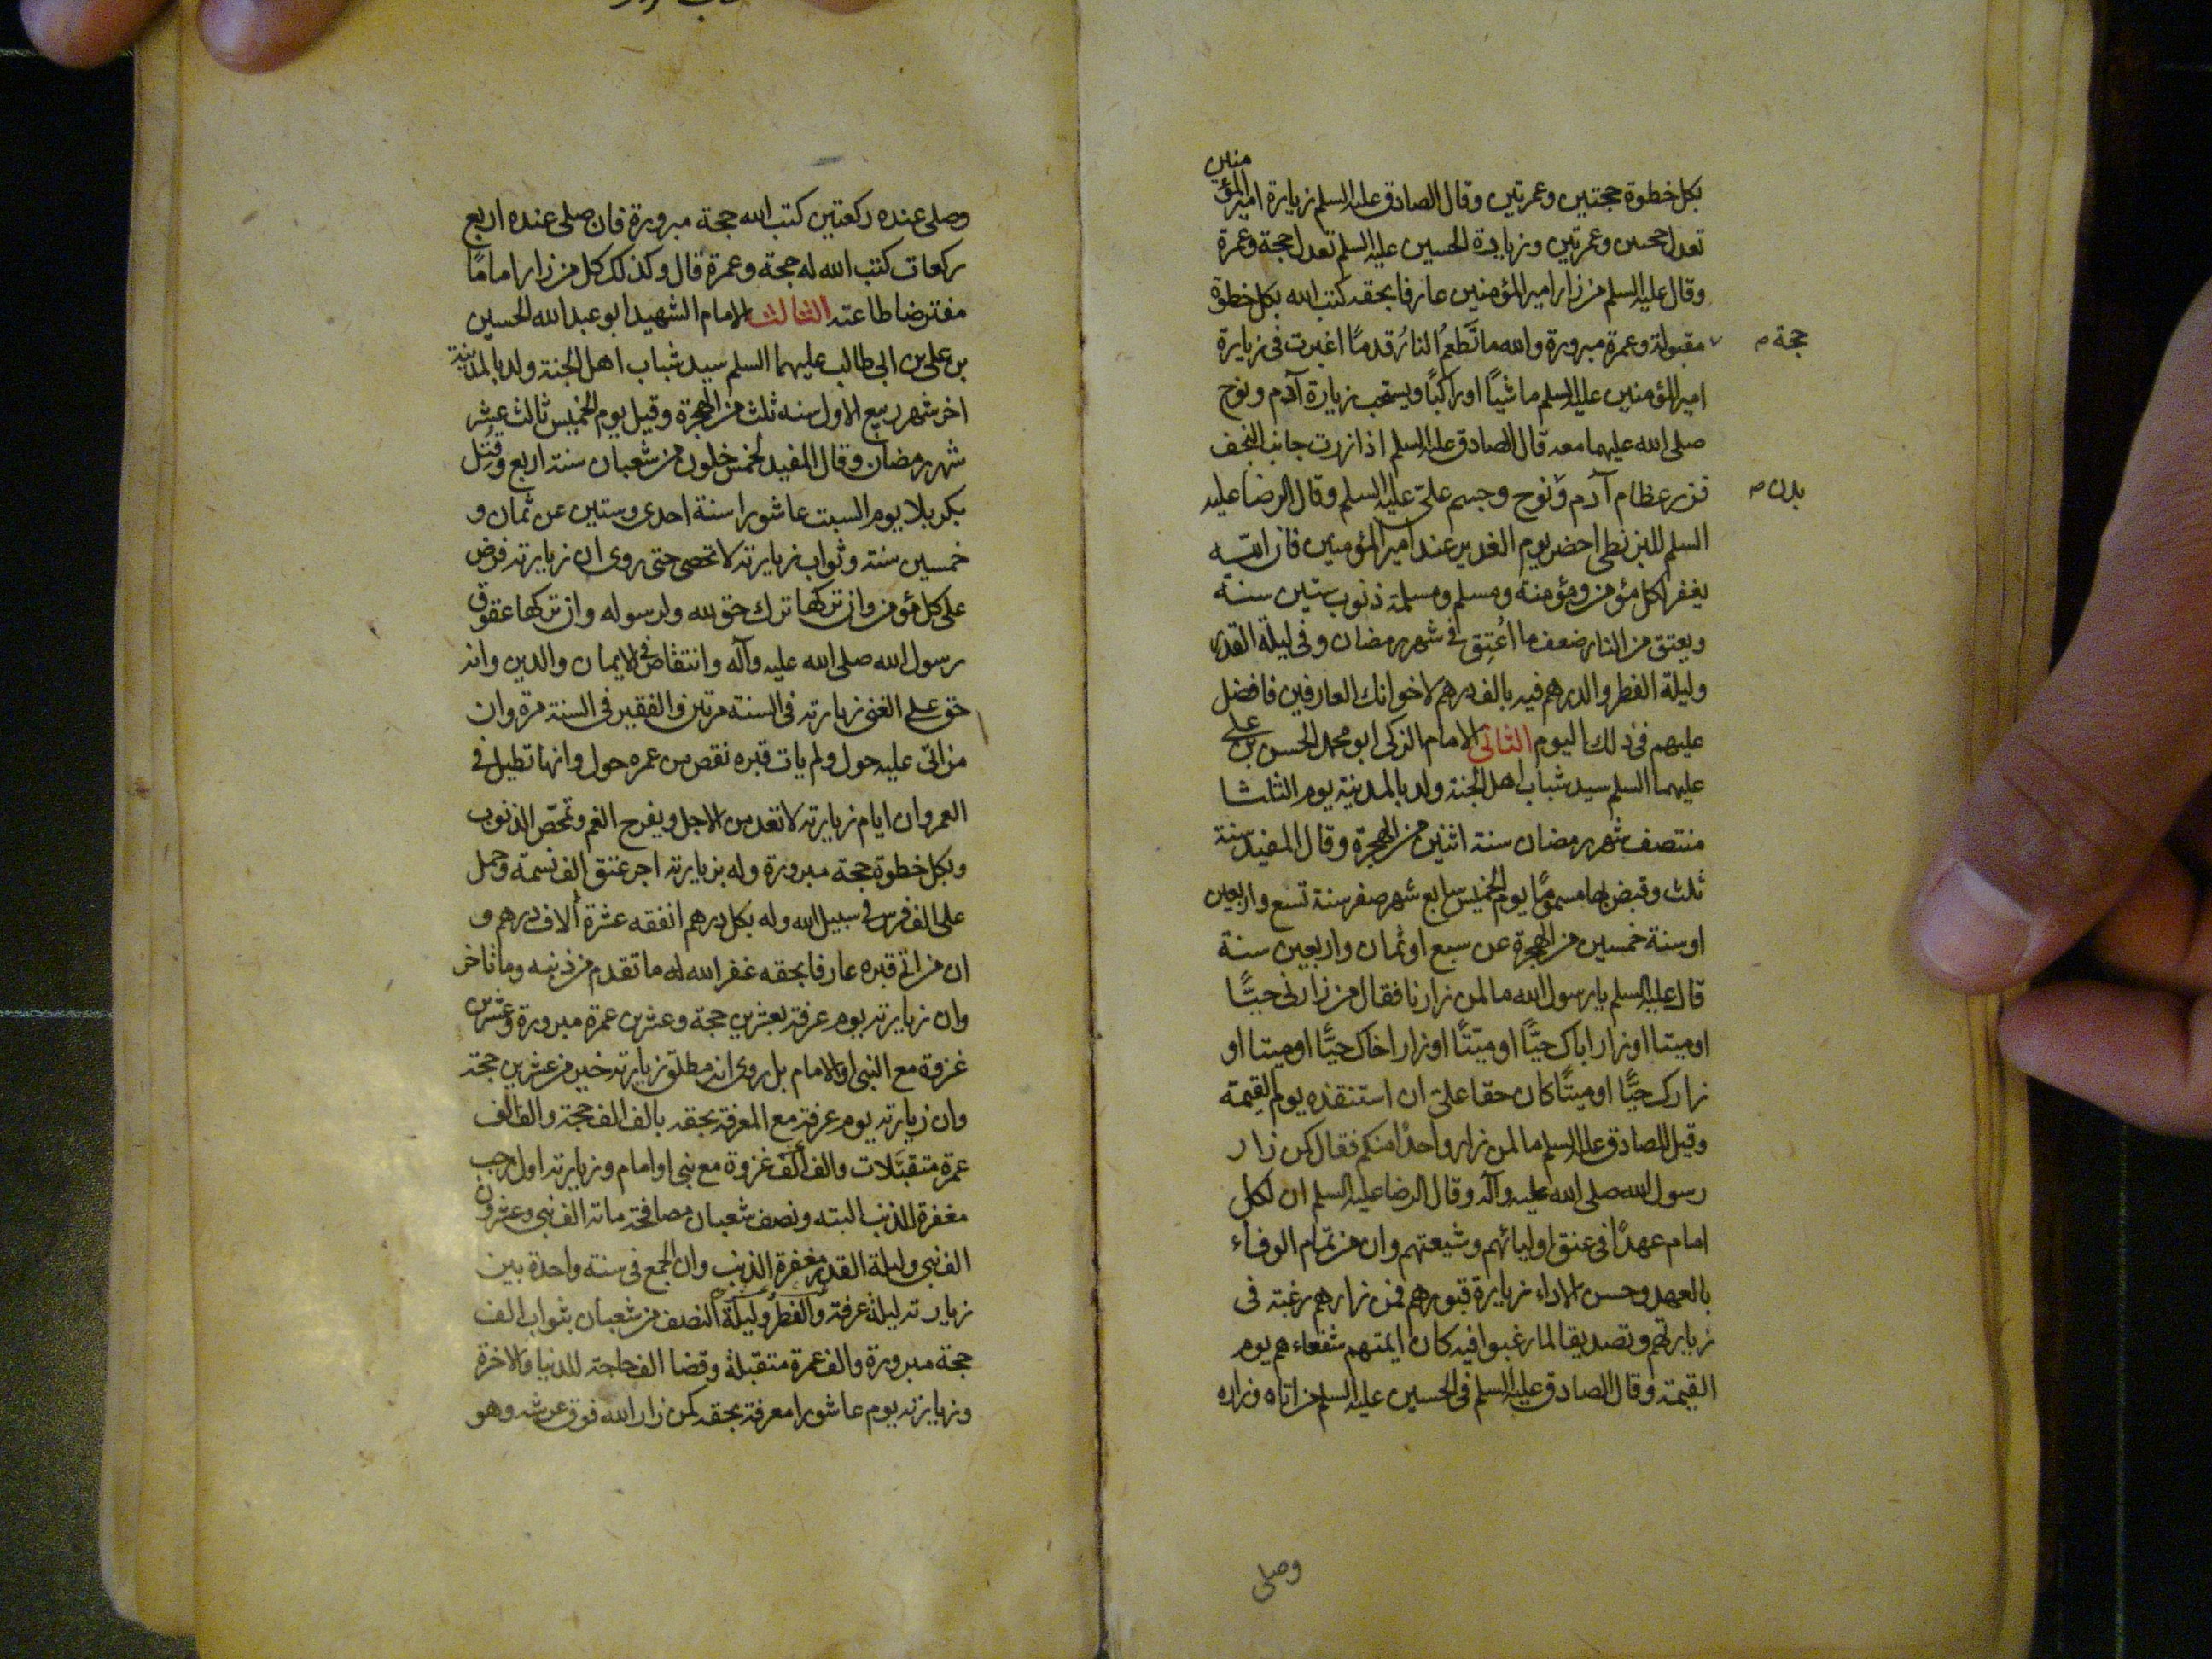 بكل خطوة حجتين وعمرتين وقال الصادق عليه السلم زيارة امير المؤمنين
تعدل حجتين وعمرتين وزيارة الحسين عليه السلم تعدل حجة وعمرة
وقال عليه السلم من زار امير المؤمنين عارفا بحقه كتب الله بكل خطوة
حجة مقبولة وعمرة مبرورة والله ما تطعم النار قدمًا اغبرت في زيارة
امير المؤمنين عليه السلم ماشيًا او راكبًا ويستحب زيارة آدم ونوح
صلى الله عليهما معه قال الصادق عليه السلم اذا زرت جانب النجف
فزر عظام آدم وبدن نوح وجسم علي عليه السلم وقال الرضا عليه
السلم للبزنطي احضر يوم الغدير عند امير المؤمنين فان الله
يغفر لكل مؤمن ومؤمنة ومسلم ومسلمة ذنوب ستين سنة
ويعتق من النار ضعف ما اُعتِق في شهر رمضان وفي ليلة القدر
وليلة الفطر والدرهم فيه بالف درهم لاخوانك العارفين فافضل
عليهم في ذلك اليوم الثاني الامام الزكي ابو محمد الحسن بن علي
عليهما السلم سيد شباب اهل الجنة ولد بالمدينة يوم الثلثا
منتصف شهر رمضان سنة اثنين من الهجرة وقال المفيد سنة
ثلث وقبض بها مسمومًا يوم الخميس سابع شهر صفر سنة تسع واربعين
او سنة خمسين من الهجرة عن سبع او ثمان واربعين سنة
قال عليه السلم يا رسول الله ما لمن زارنا فقال من زارني حيًّا
او ميتا او زار اباك حيًّا او ميّتًا او زار اخاك حيًّا او ميتا او
زارك حيًّا او ميتًا كان حقا عليّ ان استنقذه يوم القيمة
وقيل للصادق عليه السلم ما لمن زار واحدًا منكم فقال كمن زار
رسول الله صلى الله عليه وآله وقال الرضا عليه السلم ان لكل
امام عهدًا في عنق اوليائهم وشيعتهم وان من تمام الوفاء
بالعهد وحسن الاداء زيارة قبورهم فمن زارهم رغبة في
زيارتهم وتصديقا لما رغبوا فيه كان ايمتهم شفعاءهم يوم
القيمة وقال الصادق عليه السلم في الحسين عليه السلم من اتاه وزاره
وصلى
وصلى عنده ركعتين كتب الله حجة مبرورة فان صلى عنده اربع
ركعات كتب الله له حجة وعمرة قال وكذلك كل من زار امامًا
مفترضا طاعته الثالث الامام الشهيد ابو عبد الله الحسين
بن علي بن ابي طالب عليهما السلم سيد شباب اهل الجنة ولد بالمدينة
اخر شهر ربيع الاول سنه ثلث من الهجرة وقيل يوم الخميس ثالث عشر
شهر رمضان وقال المفيد لخمس خلون من شعبان سنة اربع وقُتل
بكربلا يوم السبت عاشورا سنة احدى وستين عن ثمان و
خمسين سنة وثواب زيارته لا تحصى حتى روى ان زيارته فرض
على كل مؤمن وان تركها ترك حق لله ولرسوله وان تركها عقوق
رسول الله صلى الله عليه وآله وانتقاص في الايمان والدين وانه
حق على الغنى زيارته في السنة مرتين والفقير في السنة مرة وان
من اتى عليه حول ولم يات قبره نقص من عمره حول وانها تطيل في
العمر وان ايام زيارته لا تعد من الاجل ويفرج الغم وتمحّص الذنوب
وبكل خطوة حجة مبرورة وله بزيارته اجر عتق الف نسمة وحمل
على الف فرس في سبيل الله وله بكل درهم انفقه عشرة آلاف درهم و
ان من اتى قبره عارفا بحقه غفر الله له ما تقدم من ذنبه وما تاخر
وان زيارته يوم عرفة بعشرين حجة وعشرين عمرة مبرورة وعشرين
غزوة مع النبي او الامام بل روى ان مطلق زيارته خير من عشرين حجة
وان زيارته يوم عرفة مع المعرفة بحقه بالف الف حجة والف الف
عمرة متقبّلات والف الف غزوة مع نبي او امام وزيارته اول رجب
مغفرة للذنب البته ونصف شعبان مصافحة مائة الف نبي وعشرون
الف نبي وليلة القدر مغفرة الذنب وان الجمع في سنة واحدة بين
زيارته ليلة عرفة والفطر وليلة النصف من شعبان بثواب الف
حجة مبرورة والف عمرة متقبلة وقضا الف حاجة للدنيا والاخرة
وزيارته يوم عاشورا معرفة بحقه كمن زار الله فوق عرشه وهو